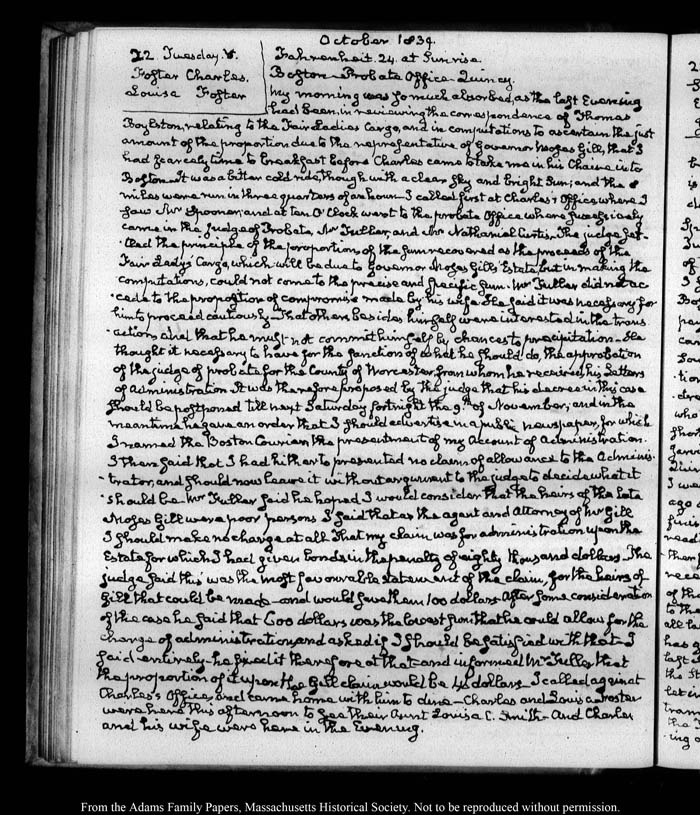 October 1839.
22 Tuesday. V.
Foster Charles.
Louisa Foster
Fahrenheit. 24. at Sunrise
Boston—Probate Office—Quincy.
My morning was so much absorbed, as the last Evening
had been, in reviewing the correspondence of Thomas
Boylston, relating to the Fair Ladies Cargo, and in computations to ascertain the just
amount of the proportion due to the representative of Governor Moses Gill, that I
had scarcely time to breakfast before Charles came to take me in his Chaise into
Boston—It was a bitter cold ride, though with a clear sky and bright Sun; and the 8
miles were run in three quarters of an hour. I called first at Charles's Office where I
saw Mr Spooner, and at ten O'Clock went to the probate Office where successively
came in the Judge of Probate, Mr Fuller, and Mr Nathaniel Curtis. The judge set-
-tled the principle of the proportion of the sum recovered as the proceeds of the
Fair Lady's Cargo, which will be due to Governor Moses Gill's Estate, but in making the
computations, could not come to the precise and specific sum. Mr Fuller did not ac
-cede to the proposition of compromise made by his wife. He said it was necessary for
him to proceed cautiously—That others besides himself were interested in the trans
-actions and that he must not commit himself by chances to precipitation—He
thought it necessary to have for the sanction of what he should do, the approbation
of the judge of probate for the County of Worcester, from whom he received his Letters
of Administration. It was therefore proposed by the judge that his decree in this case
should be postponed till next Saturday fortnight the 9th of November; and in the
meantime he gave an order that I should advertise in a public newspaper, for which
I named the Boston Courier, the presentment of my Account of Administration.
I then said that I had hitherto presented no claim of allowance to the Adminis-
-trator, and should now leave it without argument to the judge to decide what it
should be. Mr Fuller said he hoped I would consider that the heirs of the late
Moses Gill were poor persons. I said that as the agent and Attorney of Mr Gill
I should make no charge at all. That my claim was for administration upon the
Estate for which I had given bonds in the penalty of eighty thousand dollars. The
judge said this was the most favourable statement of the claim, for the heirs of
Gill that could be made—and would save them 100 dollars. After some consideration
of the case he said that 600 dollars was the lowest sum that he could allow for the
charge of administration, and asked if I should be satisfied with that—I
said entirely—he fixed it therefore at that—and informed Mr Fuller that
the proportion of it upon the Gill claim would be 44 dollars—I called again at
Charles's Office, and came home with him to dine—Charles and Louisa Foster
were here this afternoon to see their Aunt Louisa C. Smith—And Charles
and his wife were here in the Evening.
From the Adams Family Papers, Massachusetts Historical Society. Not to be reproduced without permission.